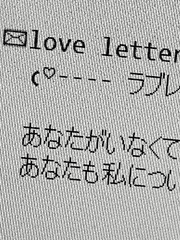 ✉love letter
☾♡---- ラブレ
あなたがいなくて
あなたも私につい